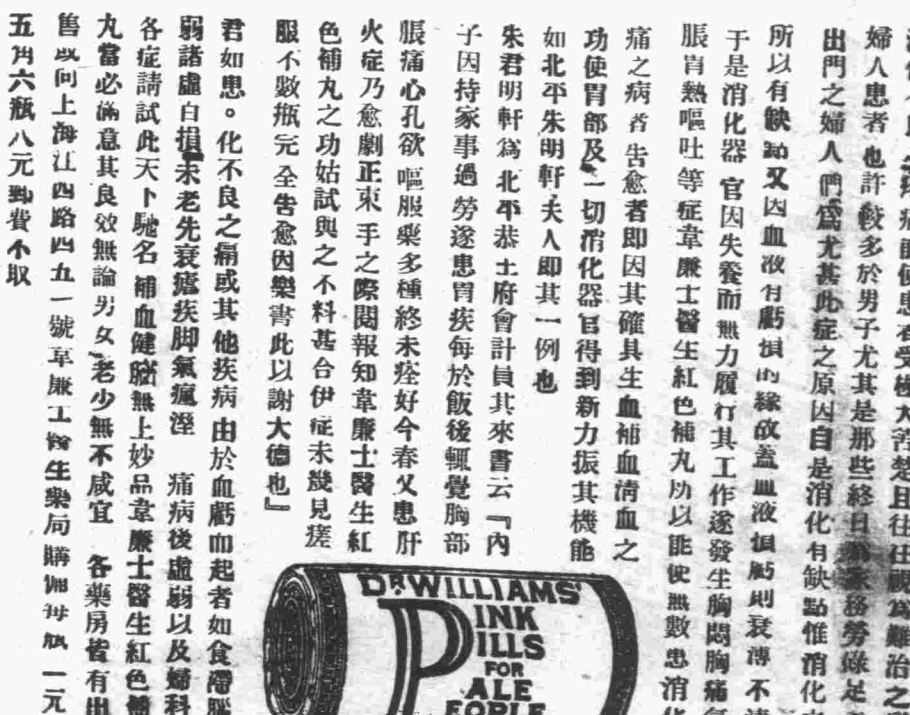 病
婦人患者也許較多於男子尤其是那些終日 家務勞碌足
出門之婦人們爲尤甚此症之原因自是消化有缺點惟消化
所以有缺點又因血液有虧損的緣故蓋血液損虧則衰薄不
于是消化器官因失養而無力履行其工作遂發生胸悶胸痛
脹胃熱嘔吐等症韋廉士醫生紅色補丸所以能使無數患消
痛之病者告愈者即因其確具生血補血清血之
功使胃部及一切消化器官得到新力振其機能
如北平朱明軒夫人即其一例也
朱君明軒爲北平恭王府會計員其來書云『內
子因持家事過勞遂患胃疾每於飯後輒覺胸部
脹痛心孔欲嘔服藥多種終未痊好今春又患肝
火症乃愈劇正束手之際閱報知韋廉士醫生紅
色補丸之功姑試與之不料甚合伊症未幾見瘥
服不數瓶完全告愈因樂書此以謝大德也』
君如患。化不良之痛或其他疾病由於血虧而起者如食滯腦
弱諸虛白損未老先衰瘧疾脚氣瘋溼 痛病後虛弱以及婦科
各症請試此天下馳名補血健腦無上妙品韋廉士醫生紅色補
丸當必滿意其良效無論男女老少無不咸宜 各藥房皆有出
售或向上海江西路四五一號韋廉士醫生藥局購 每瓶一元
五角六瓶八元郵費不取
DR WILLIAMS'
PINK
PILLS
FOR
PALE
PEOPLE